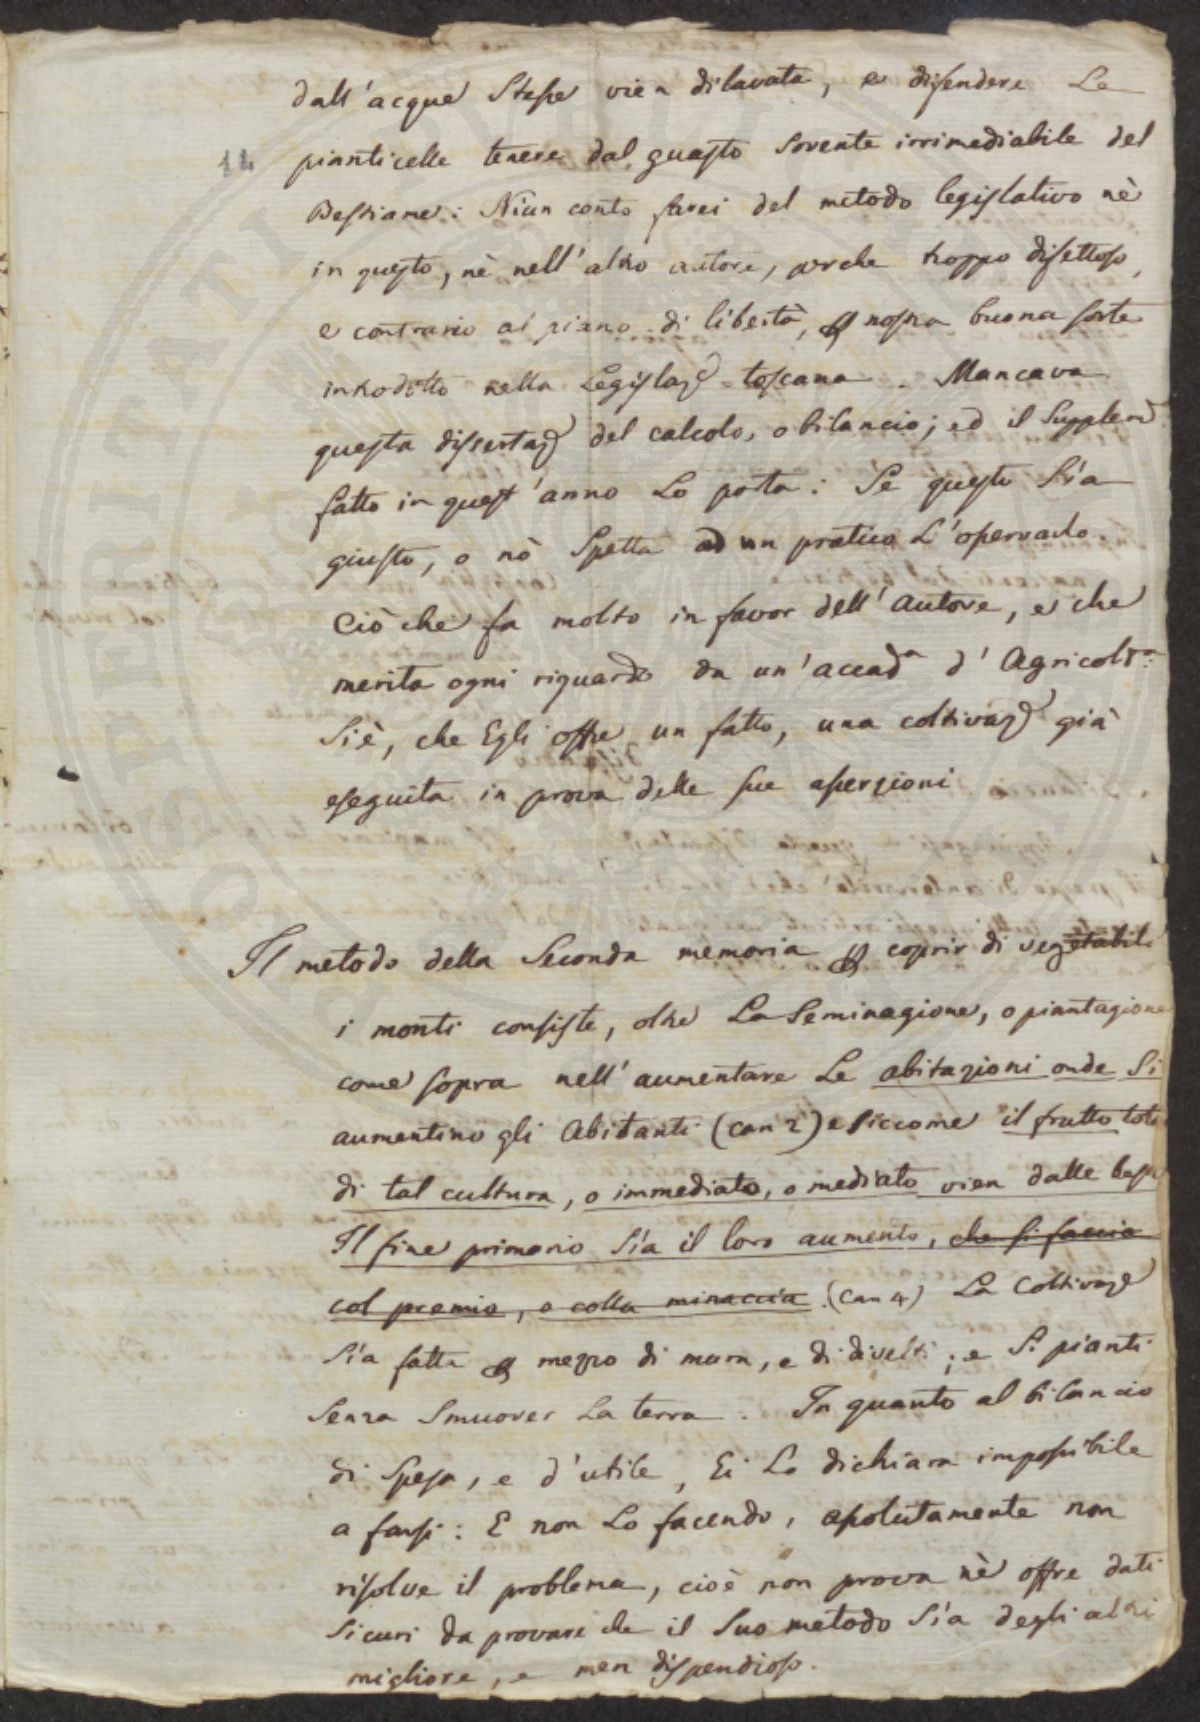 dall'acque Stesse vien dilavata, e difendere Le
14
pianticelle tenere dal guasto Sovente irrimediabile del
Bestiame: Niun conto farei del metodo legislativo nè
in questo, nè nell'altro autore, perche troppo difettoso,
e contrario al piano di libertà, p nostra buona sorte
introdotto nella Legislaz.e toscana. Mancava
questa dissertaz.e del calcolo, o bilancio; ed il Supplem.
fatto in quest'anno Lo porta: Se questo Sia
giusto, o nò Spetta ad un pratico L'osservarlo.
Ciò che fa molto in favor dell'autore, e che
merita ogni riguardo da un'accad.a d'Agricolt.a
Si è, che Egli offre un fatto, una coltivaz.e già
eseguita in prova delle sue asserzioni
Il metodo della Seconda memoria p coprir di vegetabili
i monti consiste, oltre La Seminagione, o piantagione
come sopra nell'aumentare Le abitazioni onde Si
aumentino gli Abitanti (can 2) e siccome il frutto tot
di tal cultura, o immediato, o mediato vien dalle bes
Il fine primario Sia il loro aumento, che si faccia
col premio, o colla minaccia (can 4) La Coltivaz.e
Sia fatta p mezzo di mura, e di divelti; e Si pianti
Senza Smuover La terra. In quanto al bilancio
di Spesa, e d'utile, Ei Lo dichiara impossibile
a farsi: E non Lo facendo, assolutamente non
risolve il problema, cioè non prova nè offre dati
Sicuri da provare che il Suo metodo Sia degli altri
migliore, e men dispendioso.